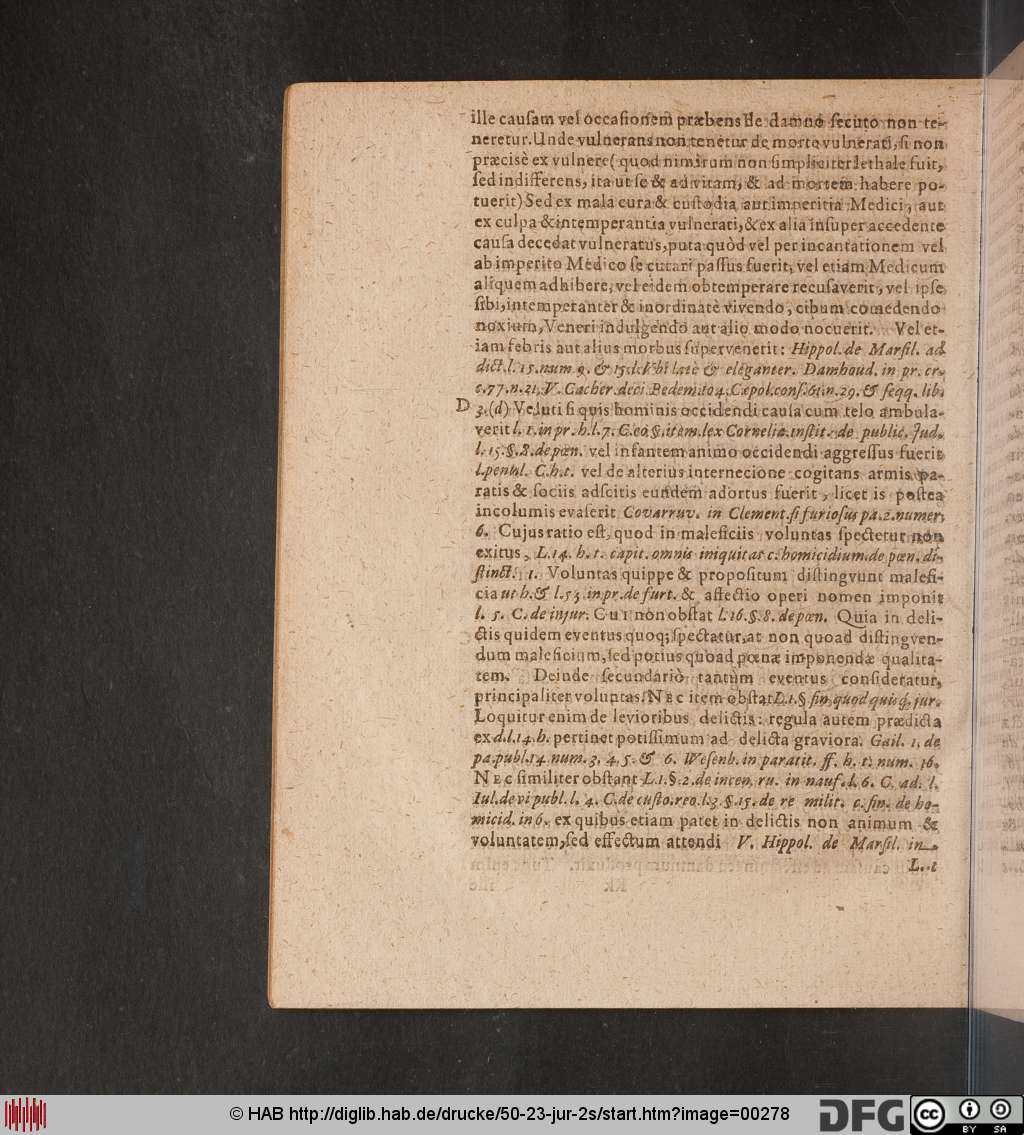 ille cauſam vel occaſionem præbens de damno ſecuto non te-
neretur. Unde vulnerans non tenetur de morte vulnerati, ſi non
præcisè ex vulnere (quod nimirum non ſimpliciter lethale fuit,
ſed indifferens, ita ut ſe & ad vitam, & ad mortem habere po-
tuerit) Sed ex mala cura & cuſtodia aut imperitia Medici, aut
ex culpa & intemperantia vulnerati, & ex alia inſuper accedente
cauſa decedat vulneratus, puta quòd vel per incantationem vel
ab imperito Medico ſe curari paſſus fuerit, vel etiam Medicum
aliquem adhibere, vel eidem obtemperare recuſaverit, vel ipſe
ſibi, intemperanter & inordinatè vivendo, cibum comedendo
noxium, Veneri indulgendo aut alio modo nocuerit. Vel et-
iam febris aut alius morbus ſupervenerit: Hippol. de Marſil. ad
dict. l. 15. num. 9. & 15. latè & eleganter. Damhoud. in pr. cr.
c. 77. n. 21. V. Cacher. deci. Pedem. 104. Cæpol. conſ. 61. n. 29. & ſeqq. lib.
D 3. (d) Veluti ſi quis hominis occidendi cauſa cum telo ambula-
verit l. 1. in pr. h. l. 7. C. eo. §. item. lex Cornelia. inſtit. de public. Jud.
l. 15. §. 8. de pœn. vel infantem animo occidendi aggreſſus fuerit
l. penul. C. h. t. vel de alterius internecione cogitans armis pa-
ratis & ſociis adſcitis eundem adortus fuerit, licet is poſtea
incolumis evaſerit Covarruv. in Clement. ſi furioſus pa. 2. numer.
6. Cujus ratio eſt, quod in maleficiis voluntas ſpectetur non
exitus, L. 14. h. t. capit. omnis iniquitas c. homicidium. de pœn. di-
ſtinct. 1. Voluntas quippe & propoſitum diſtingvunt malefi-
cia ut h. & l. 53. in pr. de furt. & affectio operi nomen imponit
l. 5. C. de injur. Cui non obſtat l. 16. §. 8. de pœn. Quia in deli-
ctis quidem eventus quoq; ſpectatur, at non quoad diſtingven-
dum maleficium, ſed potius quoad pœnæ imponendæ qualita-
tem. Deinde ſecundariò tantùm eventus conſideratur,
principaliter voluntas. Nec item obſtat L. 1. § fin. quod quisq. jur.
Loquitur enim de levioribus delictis: regula autem prædicta
ex d. l. 14. h. pertinet potiſſimum ad delicta graviora. Gail. 1. de
pa. publ. 14. num. 3. 4. 5. & 6. Weſenb. in paratit. ff. h. t. num. 16.
Nec ſimiliter obſtant L. 1. §. 2. de incen. ru. in nauf. l. 6. C. ad. l.
Iul. de vi publ. l. 4. C. de cuſto. reo. l. 3. §. 15. de re milit. c. fin. de ho-
micid. in 6. ex quibus etiam patet in delictis non animum &
voluntatem, ſed effectum attendi V. Hippol. de Marſil. in
L. 1
© HAB http://diglib.hab.de/drucke/50-23-jur-2s/start.htm?image=00278
DFG cc BY SA